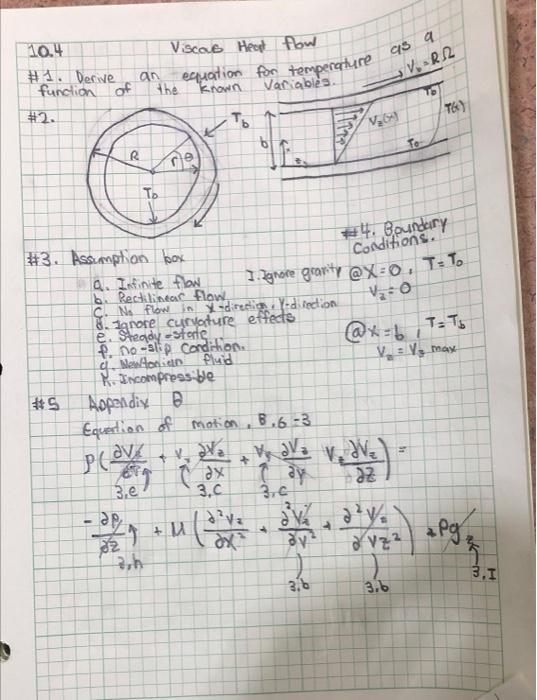 10.4 Viscous Heat flow
#1. Derive an equation for temperature as a
function of the known variables.
#2.
T_b
R
r
θ
T_o
b
V_z(x)
V_b = RΩ
T_b
T(x)
T_o
z
#3. Assumption box
a. Infinite flow
b. Rectilinear flow
c. No flow in X-direction, Y-direction
d. Ignore curvature effects
e. Steady-state
f. no-slip condition.
g. Newtonian fluid
h. Incompressible
I. Ignore gravity
#4. Boundary
Conditions.
@x=0, T=T_o
V_z=0
@x=b, T=T_b
V_z = V_z max
#5 Appendix B
Equation of motion, B.6-3
ρ(∂V_z/∂t + V_x ∂V_z/∂x + V_y ∂V_z/∂y V_z ∂V_z/∂z) =
3,e 3,c 3,c
-∂p/∂z + μ(∂²V_z/∂x² + ∂²V_z/∂y² + ∂²V_z/∂z²) + ρg_z
3,h 3,b 3,b 3,I